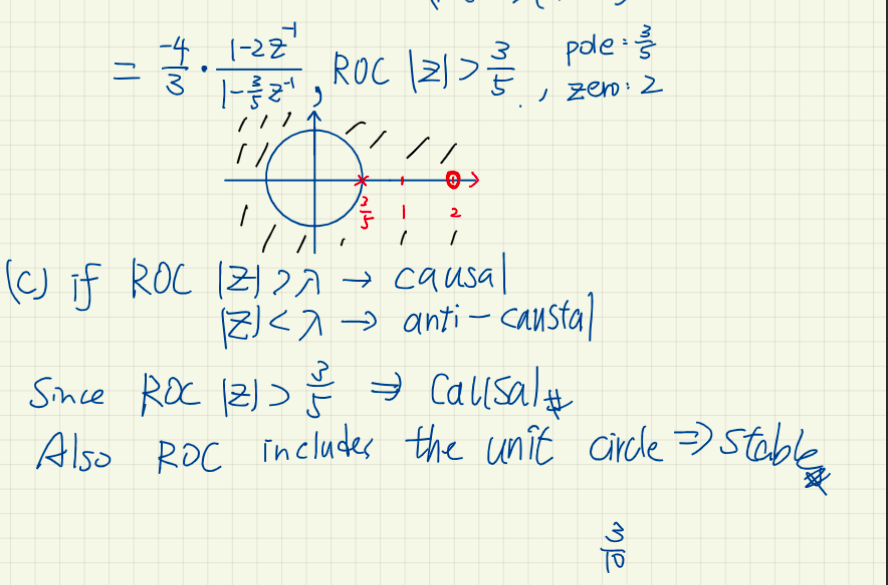 = -4/3 · (1-2z⁻¹)/(1-3/5 z⁻¹), ROC |z| > 3/5, pole: 3/5
, zero: 2
3/5 1 2
(c) if ROC |z| > λ → causal
|z| < λ → anti-caustal
Since ROC |z| > 3/5 ⇒ Causal #
Also ROC includes the unit circle ⇒ stable #
3/10